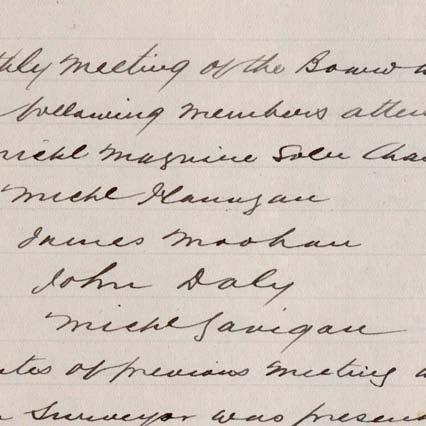 thly Meeting of the Board w
following members atten
Michl Maguire Solr Chai
Michl Flanagan
James Moohan
John Daly
Michl Gavigan
utes of previous meeting w
n Surveyor was presen